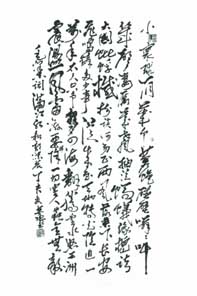 小小寰球有几个苍蝇碰壁嗡嗡叫
几声凄厉几声抽泣蚂蚁缘槐夸
大国蚍蜉撼树谈何易正西风落叶下长安
飞鸣镝多少事从来急天地转光阴迫一
万年太久只争朝夕四海翻腾云水怒五洲
震荡风雷激要扫除一切害人虫全无敌
满江红和郭沫若